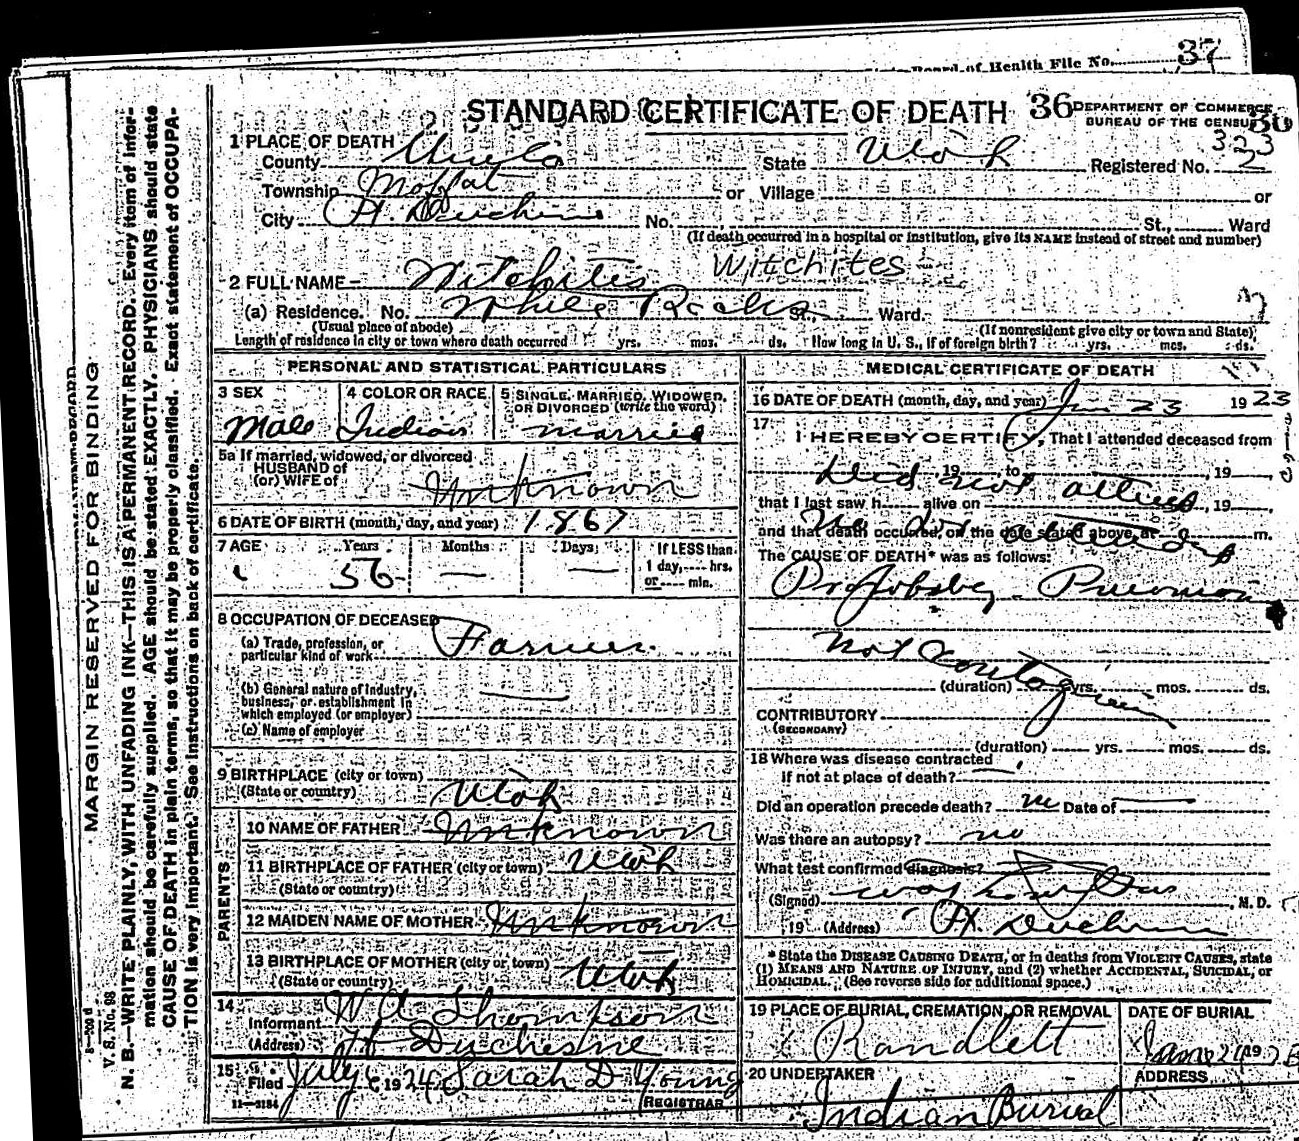 37
Board of Health File No.
STANDARD CERTIFICATE OF DEATH 36 DEPARTMENT OF COMMERCE
BUREAU OF THE CENSUS 36
323
1 PLACE OF DEATH
County State Utah Registered No. 2
Township Moffat or Village or
City Ft. Duchesne No. St., Ward
(If death occurred in a hospital or institution, give its NAME instead of street and number)
2 FULL NAME Witchites Witchites
(a) Residence. No. White Rocks St., Ward.
(Usual place of abode) (If nonresident give city or town and State)
Length of residence in city or town where death occurred yrs. mos. ds. How long in U. S., if of foreign birth? yrs. mos. ds.
PERSONAL AND STATISTICAL PARTICULARS
3 SEX 4 COLOR OR RACE 5 SINGLE, MARRIED, WIDOWED, OR DIVORCED (write the word)
Male Indian married
5a If married, widowed, or divorced
HUSBAND of
(or) WIFE of Unknown
6 DATE OF BIRTH (month, day, and year) 1867
7 AGE Years Months Days If LESS than
1 day, hrs.
56 — — or min.
8 OCCUPATION OF DECEASED
(a) Trade, profession, or
particular kind of work Farmer
(b) General nature of industry,
business, or establishment in
which employed (or employer) —
(c) Name of employer
9 BIRTHPLACE (city or town)
(State or country) Utah
PARENTS
10 NAME OF FATHER Unknown
11 BIRTHPLACE OF FATHER (city or town) Utah
(State or country)
12 MAIDEN NAME OF MOTHER Unknown
13 BIRTHPLACE OF MOTHER (city or town)
(State or country) Utah
14
Informant Thompson
(Address) Ft Duchesne
15
Filed July 6 1924 Sarah D Young
11—3184 REGISTRAR
MEDICAL CERTIFICATE OF DEATH
16 DATE OF DEATH (month, day, and year) 23 1923
17
I HEREBY CERTIFY, That I attended deceased from
Did not attend
, 19 , to , 19 ,
that I last saw h alive on , 19 ,
and that death occurred, on the date stated above, at m.
The CAUSE OF DEATH* was as follows:
Probably Pneumonia
Not Contagious
(duration) yrs. mos. ds.
CONTRIBUTORY
(SECONDARY)
(duration) yrs. mos. ds.
18 Where was disease contracted
if not at place of death?
Did an operation precede death? no Date of —
Was there an autopsy? no
What test confirmed diagnosis?
(Signed) , M. D.
19 (Address) Ft. Duchesne
* State the DISEASE CAUSING DEATH, or in deaths from VIOLENT CAUSES, state
(1) MEANS AND NATURE OF INJURY, and (2) whether ACCIDENTAL, SUICIDAL, or
HOMICIDAL. (See reverse side for additional space.)
19 PLACE OF BURIAL, CREMATION, OR REMOVAL DATE OF BURIAL
Randlett 24 19
20 UNDERTAKER ADDRESS
Indian Burial
MARGIN RESERVED FOR BINDING
V. S. No. 98
N. B.—WRITE PLAINLY, WITH UNFADING INK—THIS IS A PERMANENT RECORD. Every item of infor-
mation should be carefully supplied. AGE should be stated EXACTLY. PHYSICIANS should state
CAUSE OF DEATH in plain terms, so that it may be properly classified. Exact statement of OCCUPA-
TION is very important. See instructions on back of certificate.